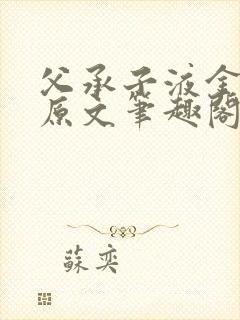 父承子液全
原文筆趣閣
蘇奕